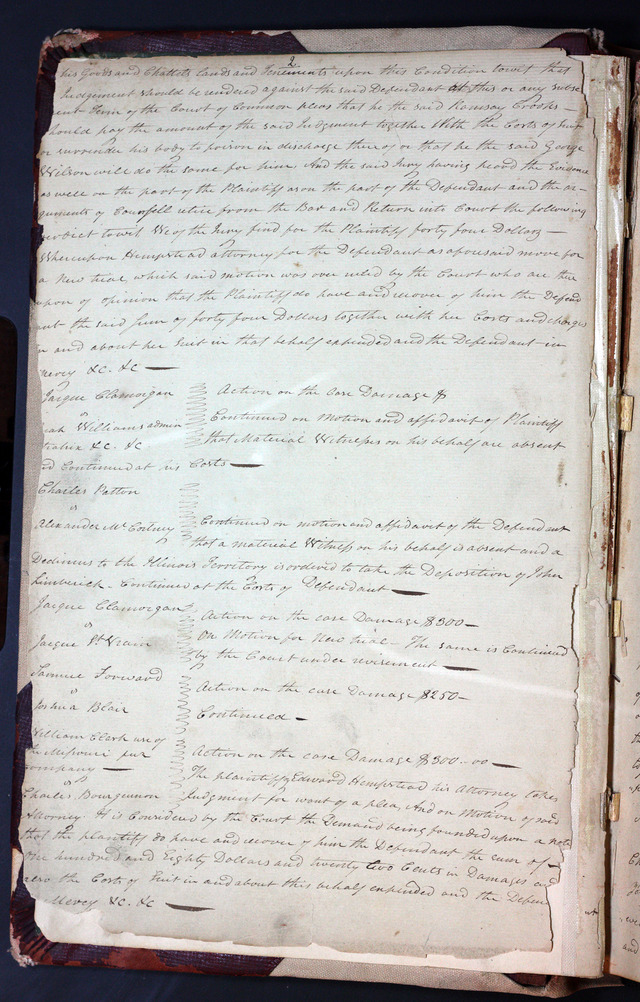 2
his Goods and Chattels lands and Tenements upon this Condition towit that
Judgement should be rendered against the said Defendant at this or any subse
ent Term of the Court of Common pleas that he the said Ramsay Crooks
hould pay the amount of the said Judgment together With the Costs of Suit
or surrender his body to prison in discharge thereof or that he the said George
Wilson will do the same for him. And the said Jury having heard the Evidence
as well on the part of the Plaintiff as on the part of the Defendant and the ar
guments of Counsell retire from the Bar and Return into Court the following
verdict towit We of the Jury find for the Plaintiff forty four Dollars
Whereupon Hempstead attorney for the Defendant as aforesaid move for
a New trial, which said motion was over ruled by the Court who are there
upon of opinion that the Plaintiff do have and recover of him the Defend
ant the said Sum of forty four Dollars together with her Costs and charges
in and about her Suit in that behalf expended and the Defendant in
mercy &c. &c
Jacque Clamorgan
vs
Williams admin
tratrix &c. &c
Action on the case Damage $
Continued on Motion and affidavit of Plaintiff
that Material Witnesses on his behalf are absent
and Continued at his Costs
Charles Patton
vs
Alexander McCortney
Continued on motion and affidavit of the Defendant
that a material Witness on his behalf is absent and a
Dedimus to the Illinois Territory is ordered to take the Deposition of John
Limberick. Continued at the Costs of Defendant
Jacque Clamorgan
vs
Jacque St Vrain
Action on the case Damage $500
On Motion for New trial The same is Continued
by the Court under revisement
Samuel Forward
vs
Joshua Blair
Action on the case Damage $250
Continued
William Clark use of
the Missouri Fur
Company
vs
Charles Bourguinon
Action on the case Damage $300..00
The plaintiff by Edward Hempstead his Attorney takes
Judgment for want of a plea, And on Motion of said
Attorney. It is Considered by the Court the Demand being founded upon a note
that the plaintiff do have and recover of him the Defendant the sum of
One hundred and Eighty Dollars and twenty two Cents in Damages and
also the Costs of Suit in and about this behalf expended and the Defen
Mercy &c. &c